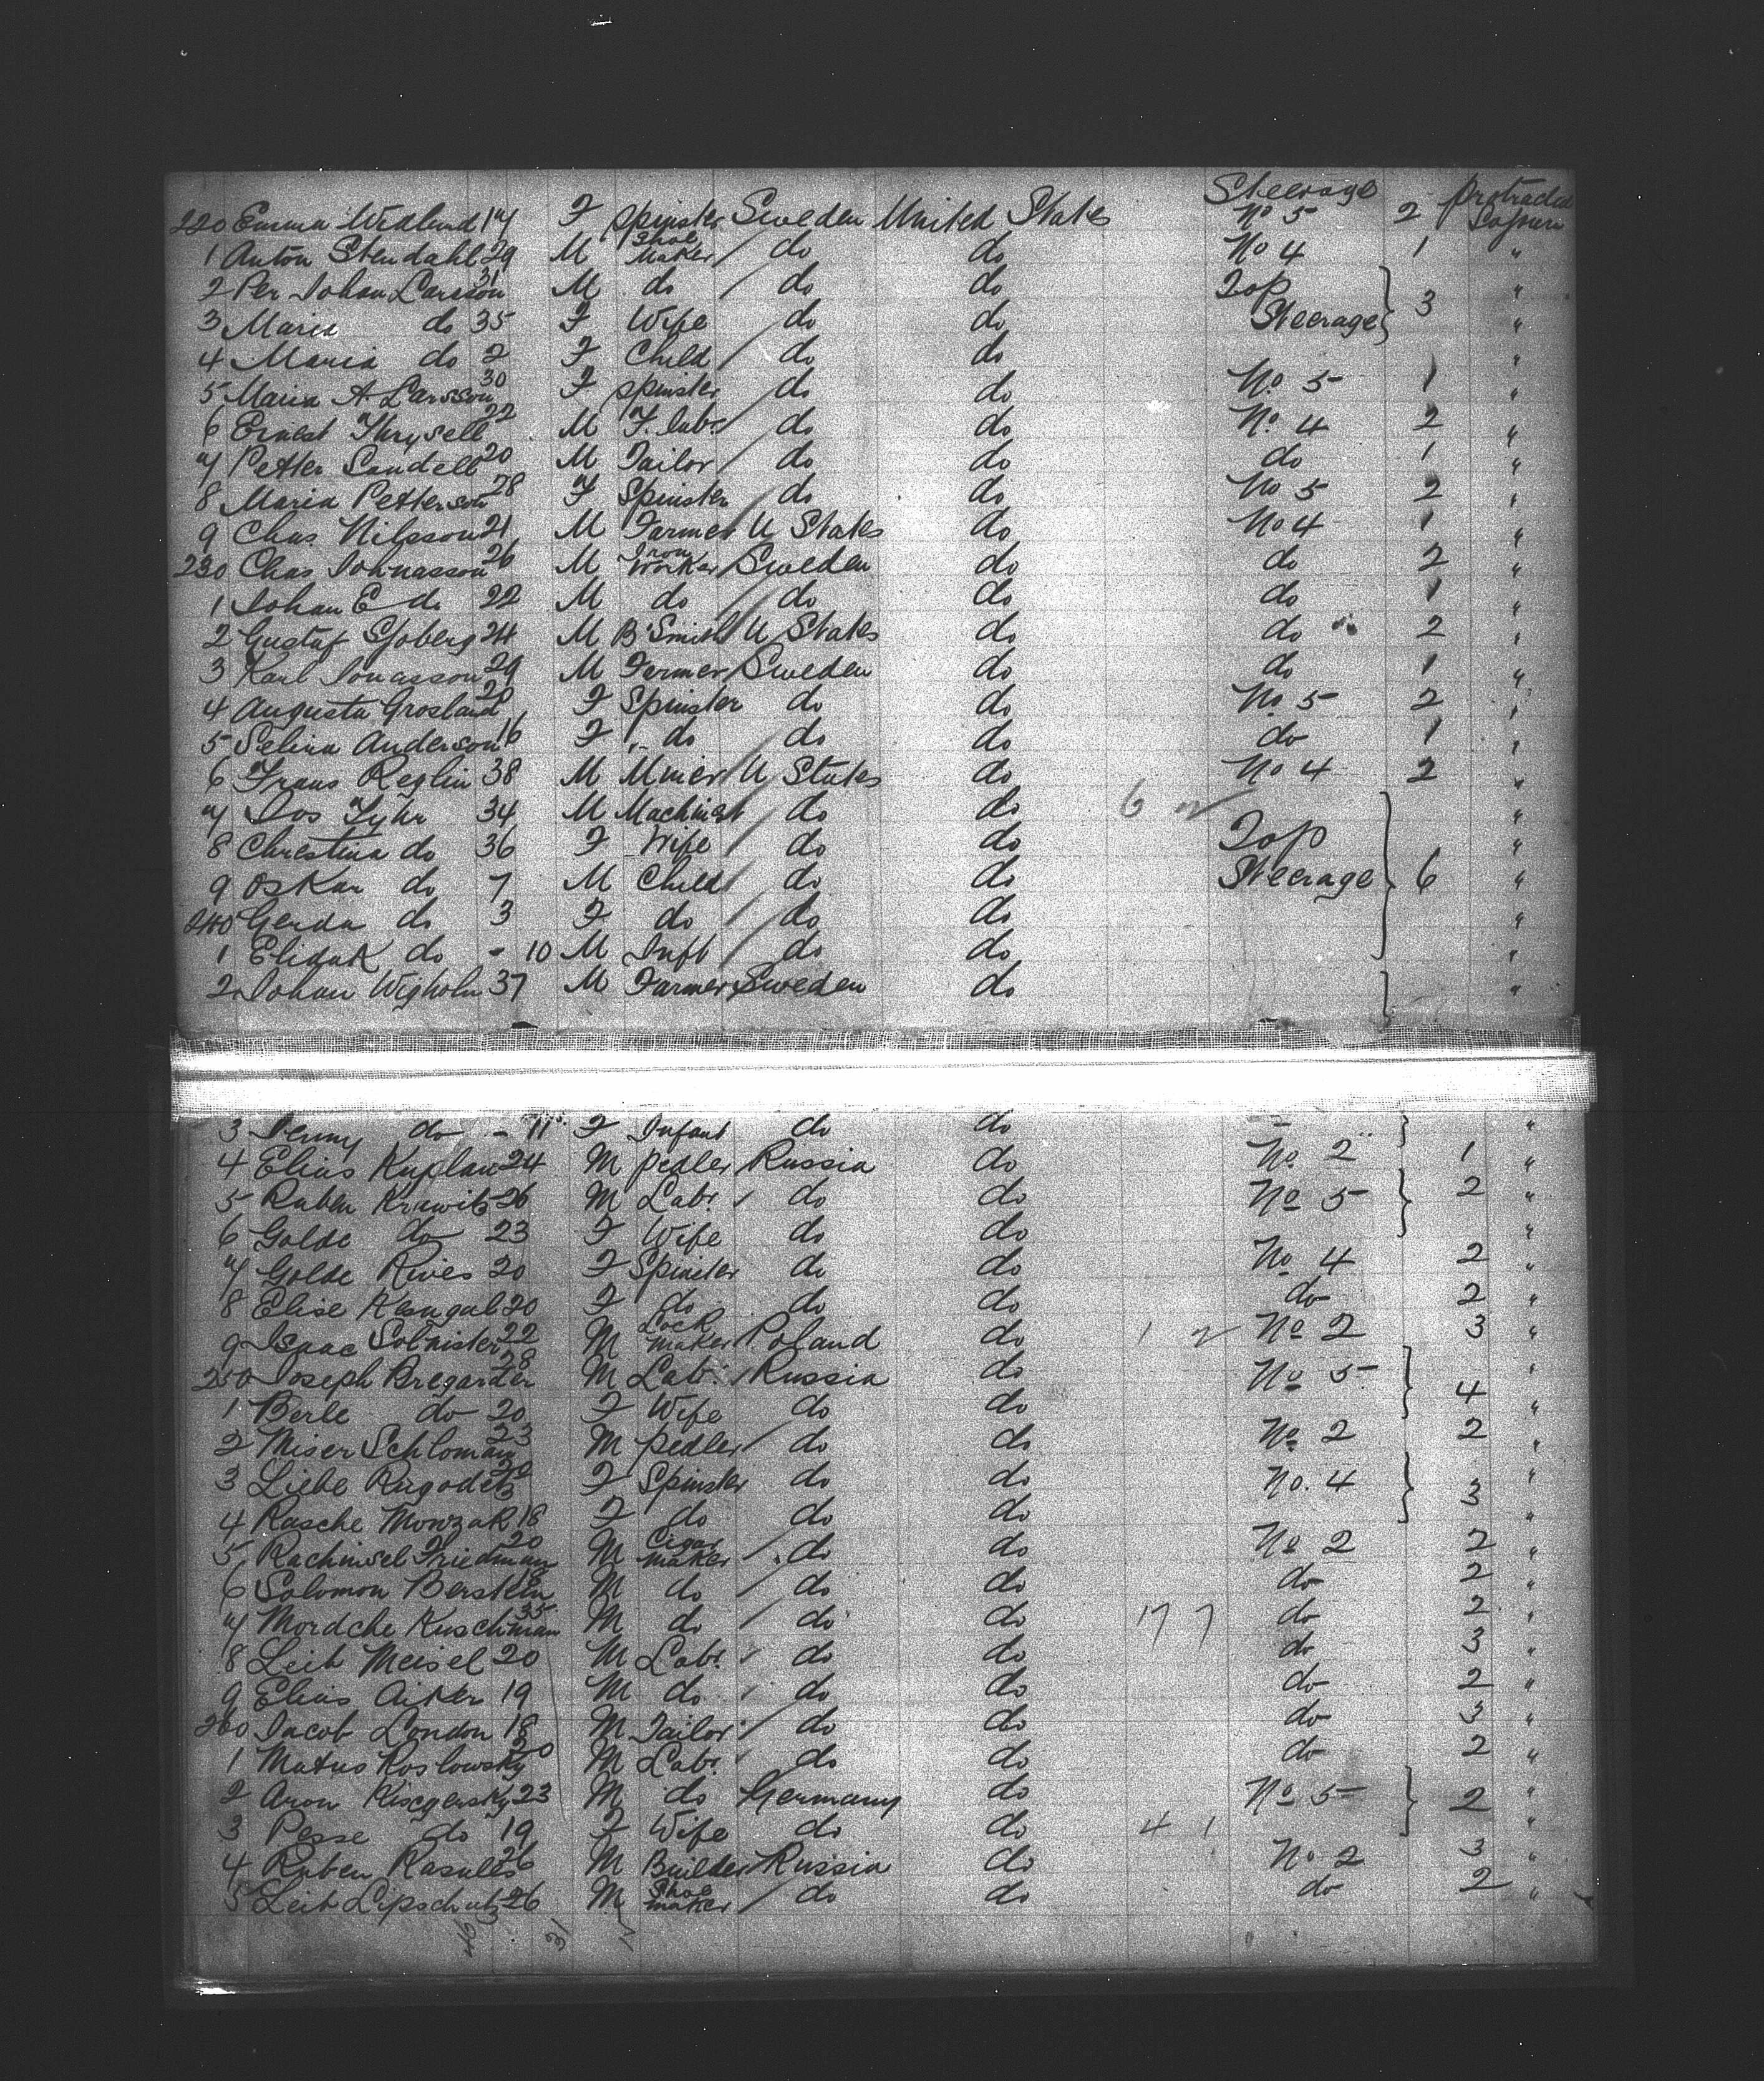 220 Emma Wedlund 17 F Spinster Sweden United States Steerage No 5 2 protracted Sojourn
1 Anton Stendahl 29 M Shoe Maker / do do No 4 1 "
2 Per Johan Larsson 31 M do / do do Top Steerage } 3 "
3 Maria do 35 F Wife / do do "
4 Maria do 2 F Child / do do "
5 Maria A Larsson 30 F Spinster do do No. 5 1 "
6 Ernest Thrysell 22 M F. labr / do do No. 4 2 "
7 Petter Sandell 20 M Tailor / do do do 1 "
8 Maria Petterson 28 F Spinster / do do No 5 2 "
9 Chas. Nilsson 21 M Farmer U States do No 4 1 "
230 Chas Johnasson 26 M Iron Worker / Sweden do do 2 "
1 Johan E do 22 M do / do do do 1 "
2 Gustaf Sjoberg 24 M B'Smith / U States do do 2 "
3 Karl Jonasson 29 M Farmer / Sweden do do 1 "
4 Augusta Grosland 20 F Spinster do do No. 5 2 "
5 Selina Anderson 16 F do do do do 1 "
6 Frans Reglin 38 M Miner / U States do No 4 2 "
7 Jos Tyhr 34 M Machinist / do do 6 Top Steerage } 6 "
8 Christina do 36 F Wife / do do "
9 Oskar do 7 M Child / do do "
240 Gerda do 3 F do / do do "
1 do - 10 M Inft / do do "
2 Johan Wigholm 37 M Farmer Sweden do "
3 Jenny do - 11 F Infant do do "
4 Elias Kaplan 24 M Pedler / Russia do No. 2 1 "
5 Ruben Krawitz 26 M Labr. / do do No 5 } 2 "
6 Golde do 23 F Wife do do "
7 Golde Rives 20 F Spinster do do No. 4 2 "
8 Elise 20 F do do do do 2 "
9 Isaac 22 M Lock maker Poland do 1 No 2 3 "
250 Joseph Bregarder 28 M Labr. / Russia do No 5 } 4 "
1 Berle do 20 F Wife do do "
2 Miser Schloman 23 M Pedler / do do No. 2 2 "
3 Liebe Rugodetz 20 F Spinster do do No. 4 } 3 "
4 Rasche Mowzak 18 F do do do "
5 Friedman 20 M Cigar maker / do do No 2 2 "
6 Solomon Berstein 18 M do / do do do 2 "
7 Mordche Kuschman 35 M do / do do 17 7 do 2 "
8 Leib Meisel 20 M Labr. / do do do 3 "
9 Elias Aiker 19 M do / do do do 2 "
260 Jacob London 18 M Tailor / do do do 3 "
1 Matus Koslowsky 20 M Labr. / do do do 2 "
2 Aron 23 M do Germany do No 5 } 2 "
3 Pesse do 19 F Wife do do 4 1 "
4 Ruben 26 M Builder Russia do No 2 3 "
5 Leib Lipschutz 26 M Shoe maker / do do do 2 "